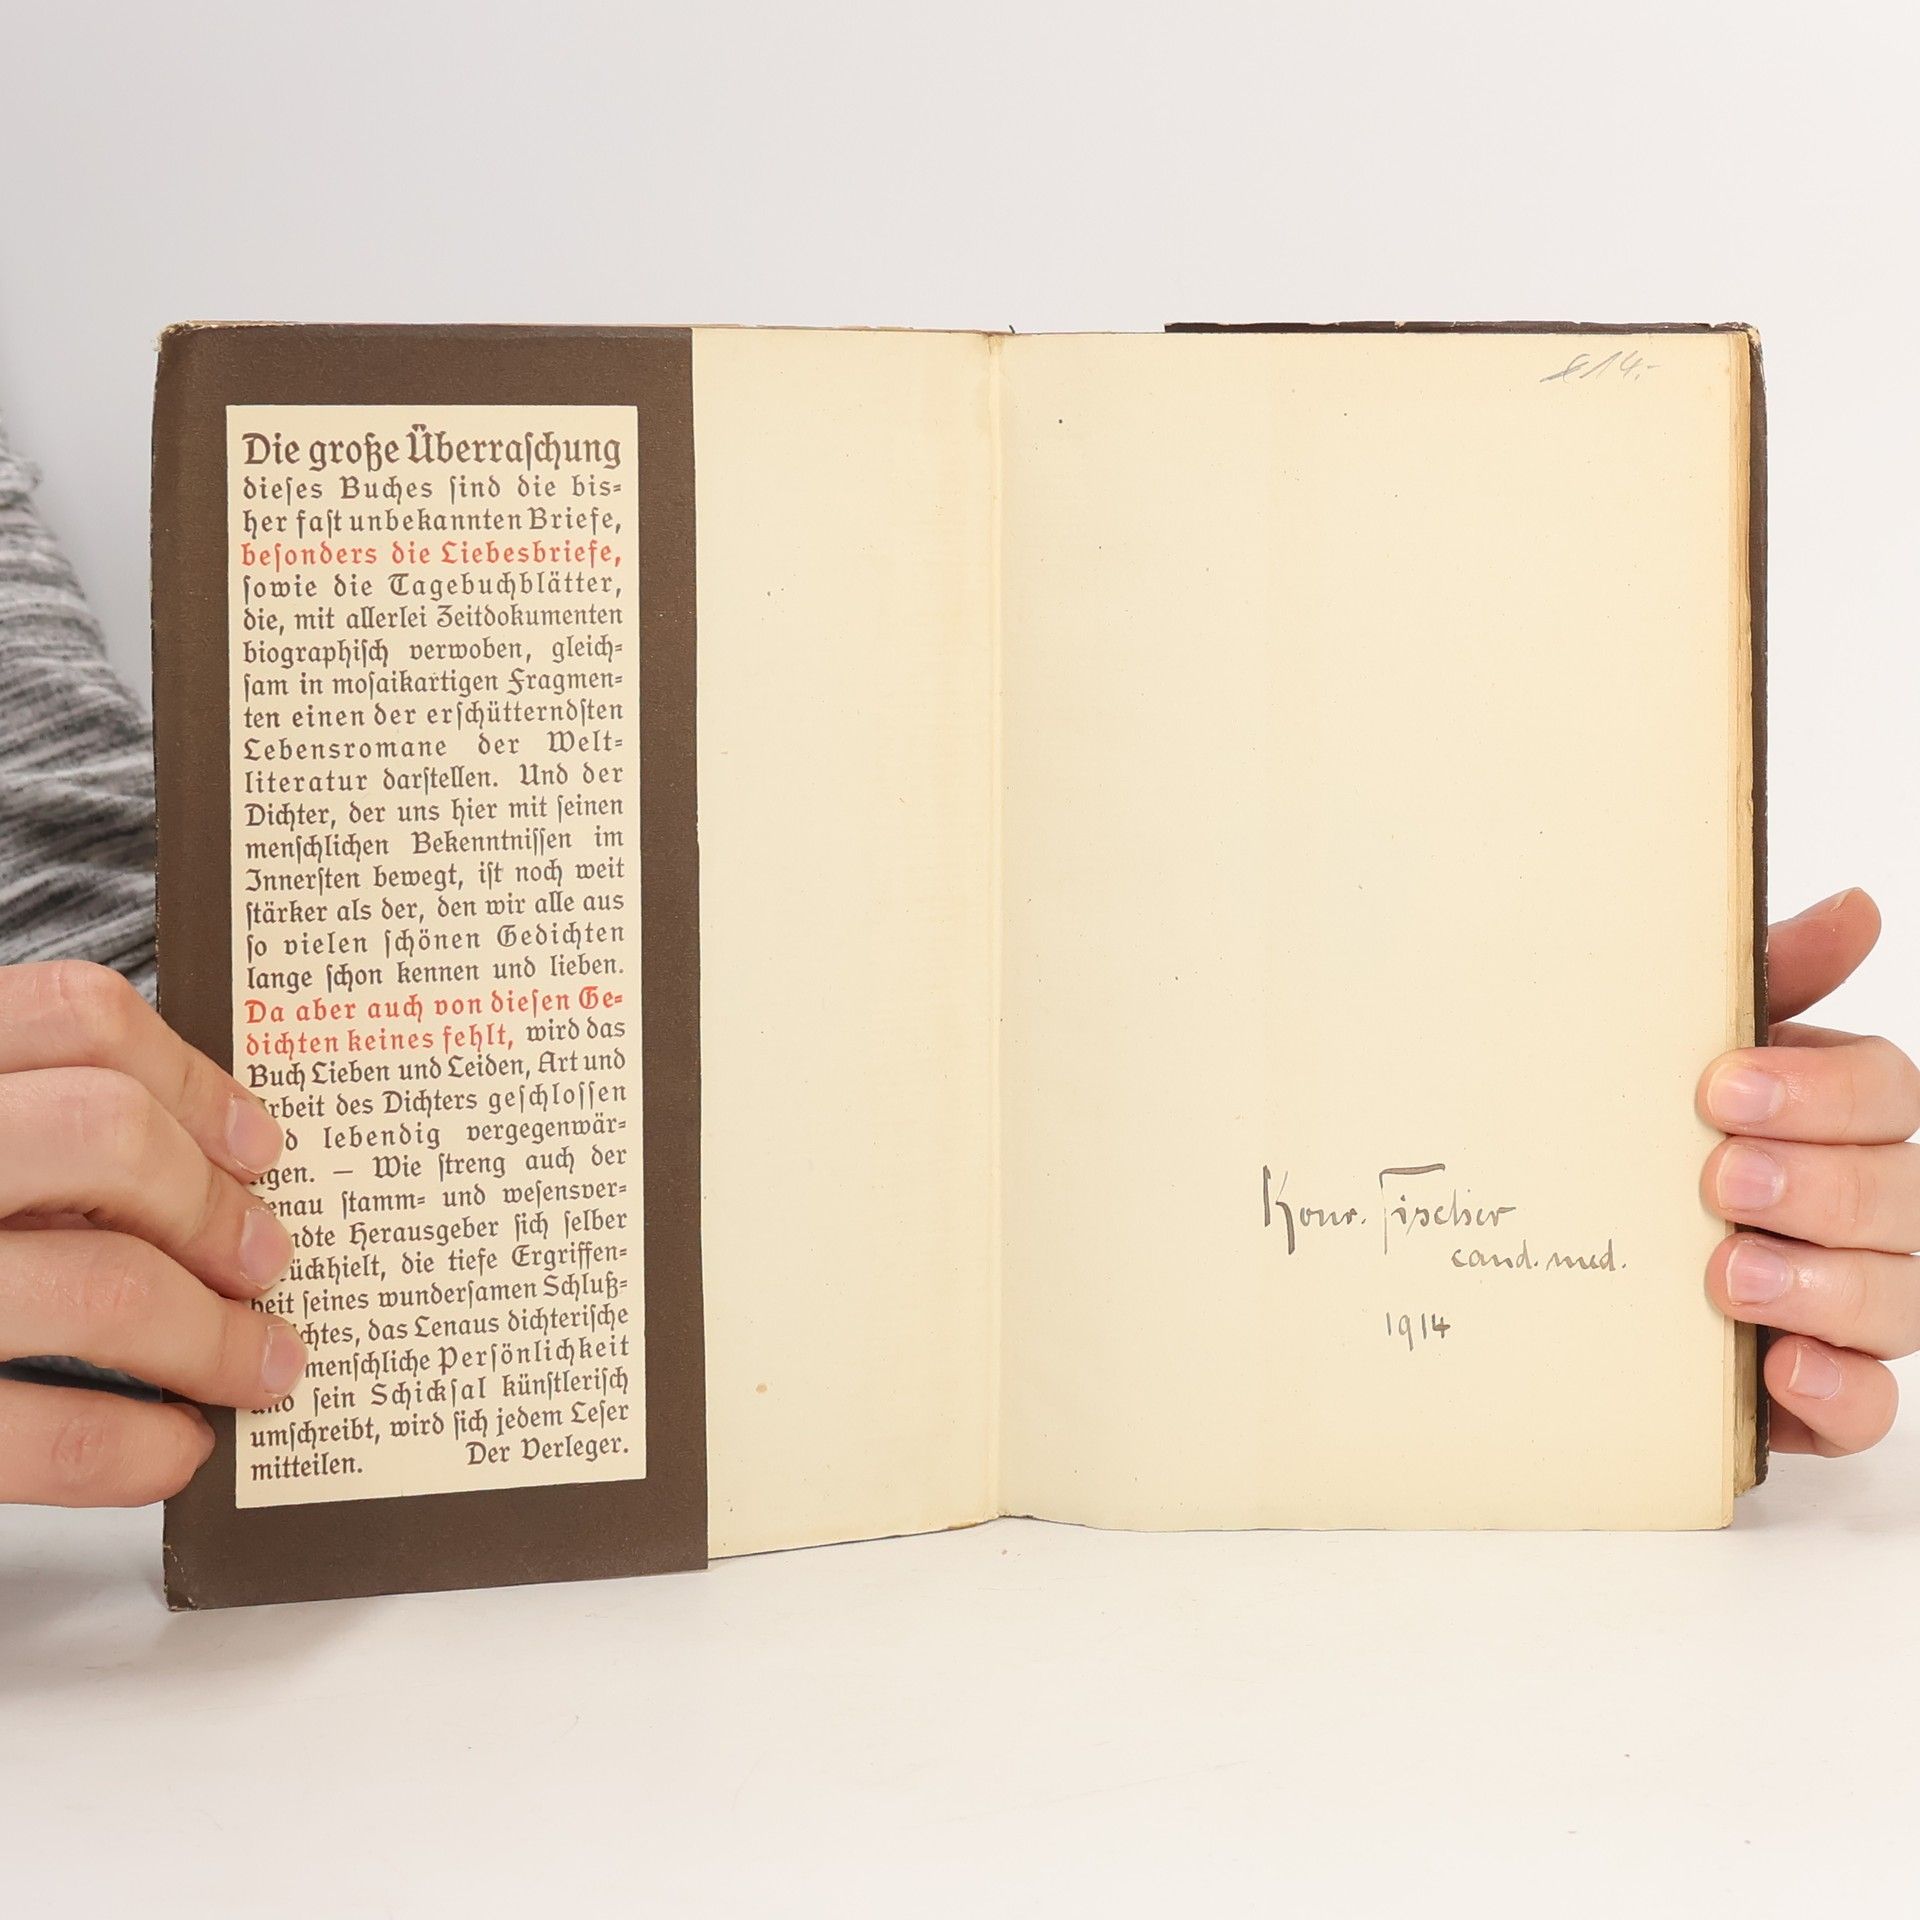 Die große Überraschung
dieses Buches sind die bis=
her fast unbekannten Briefe,
besonders die Liebesbriefe,
sowie die Tagebuchblätter,
die, mit allerlei Zeitdokumenten
biographisch verwoben, gleich=
sam in mosaikartigen Fragmen=
ten einen der erschütterndsten
Lebensromane der Welt=
literatur darstellen. Und der
Dichter, der uns hier mit seinen
menschlichen Bekenntnissen im
Innersten bewegt, ist noch weit
stärker als der, den wir alle aus
so vielen schönen Gedichten
lange schon kennen und lieben.
Da aber auch von diesen Ge=
dichten keines fehlt, wird das
Buch Lieben und Leiden, Art und
rbeit des Dichters geschlossen
d lebendig vergegenwär=
gen. — Wie streng auch der
enau stamm= und wesensver=
ndte Herausgeber sich selber
rückhielt, die tiefe Ergriffen=
heit seines wundersamen Schluß=
chtes, das Lenaus dichterische
menschliche Persönlichkeit
und sein Schicksal künstlerisch
umschreibt, wird sich jedem Leser
mitteilen. Der Verleger.
14.-
Konr. Fischer
cand. med.
1914